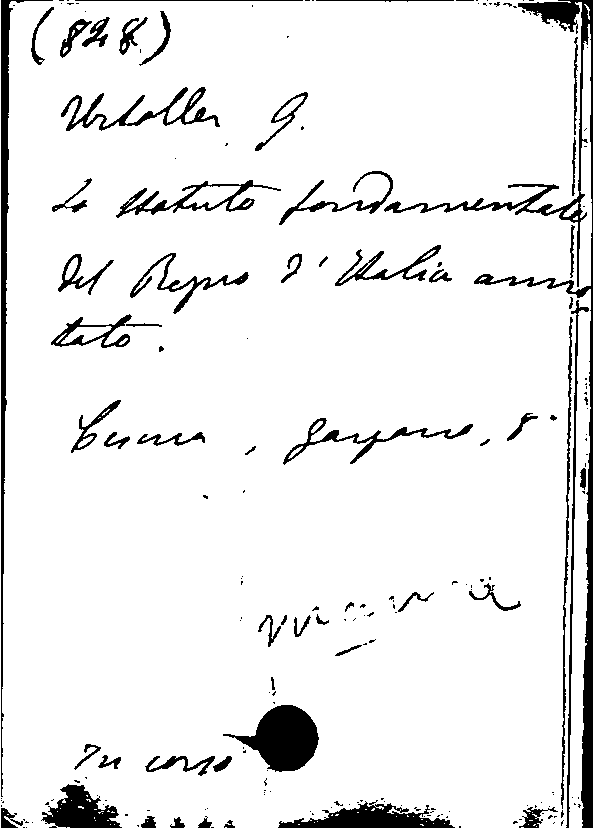 (828)
Urtoller G.
Lo Statuto fondamentale
del Regno d'Italia anno-
tato.
Cesena, Gargano, 8°
manca
In corso